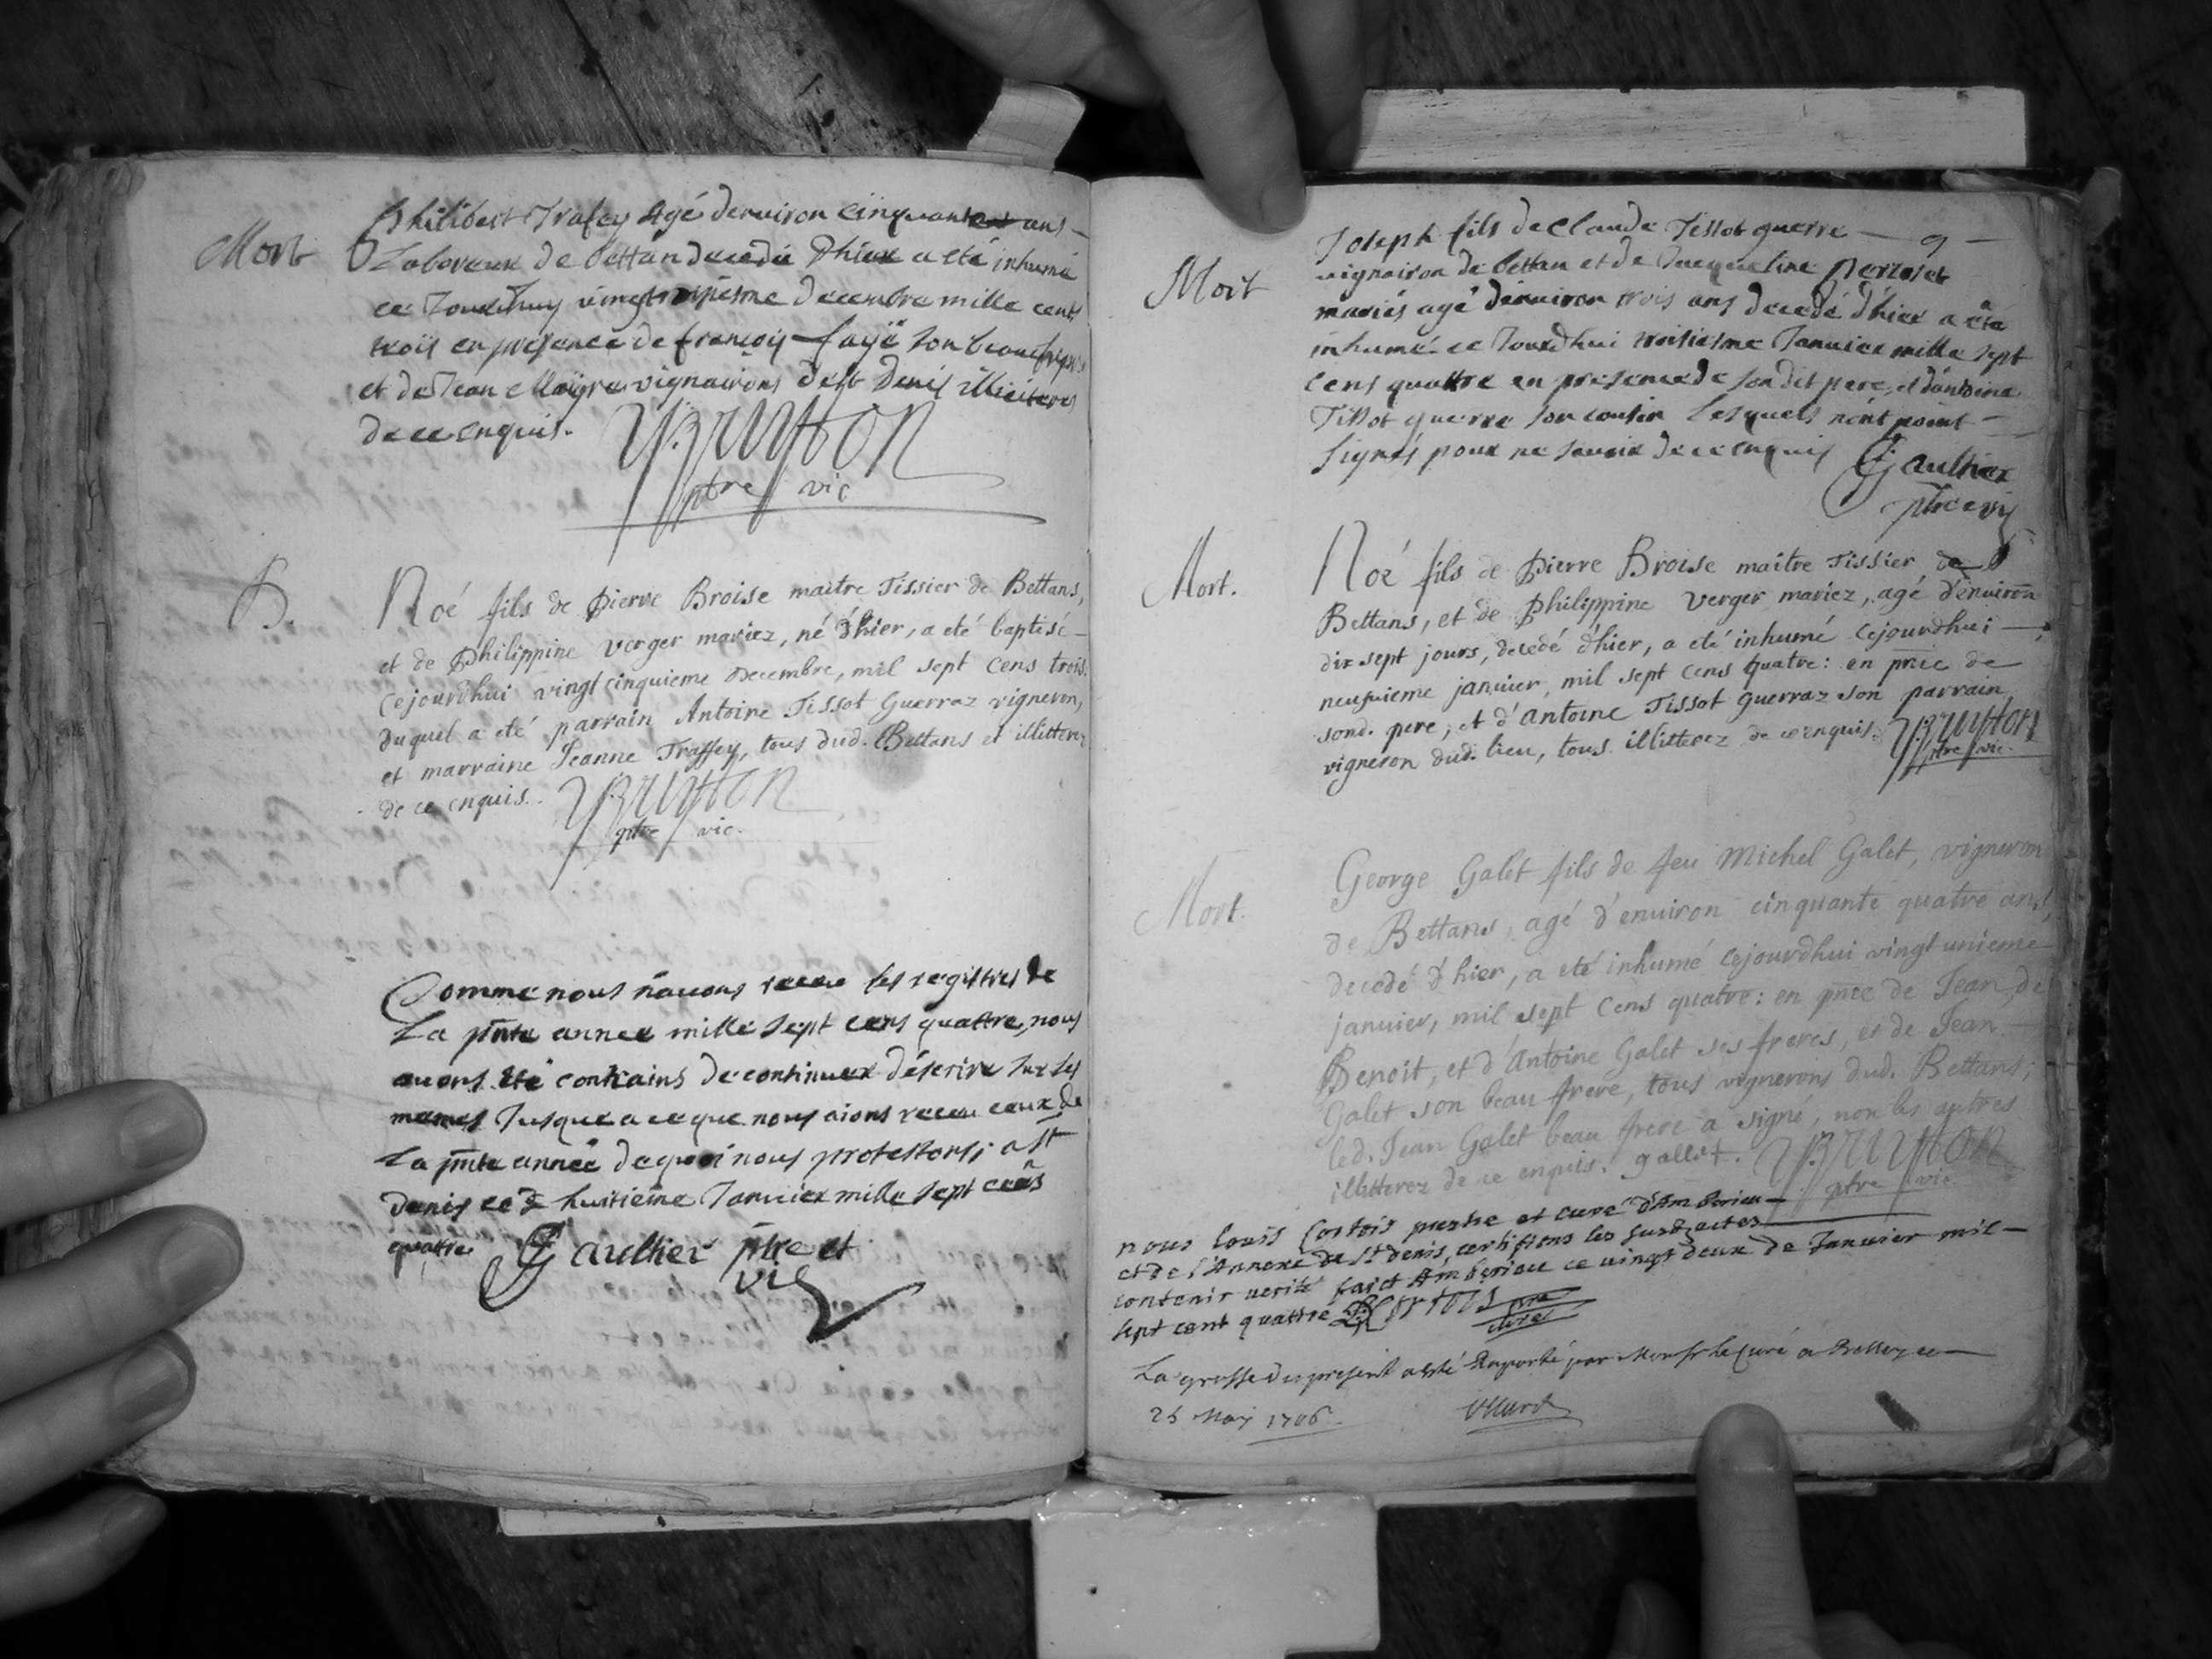 Mort
Philibert Trafey agé denuiron cinquante ans
Laboreur de bettan decedé dhier a eté inhumé
ce Jourdhuy decembre mille cents
trois en presence de françois faijé son beaufrere
et de Jean Maigre vignairons de st Denis illiteres
de ce enquis.
YBruyton
ptre vic
B.
Noé fils de Pierre Broise maitre Tissier de Bettans,
et de Philippine Verger mariez, né d'hier, a eté baptisé
cejourdhui vingt cinquieme Decembre, mil sept cens trois.
duquel a eté parrain Antoine Tissot Guerraz vigneron,
et marraine Jeanne Traffey, tous dud. Bettans et illitterez
de ce enquis.
YBruyton
ptre vic.
Comme nous nauons receu les registres de
La pnte année mille sept cens quattre, nous
auons eté contrains de continuer déscrire sur les
memes Jusque a ce que nous aions receu ceux de
La pnte année de quoi nous protestons, a st
denis ce huitieme Januier mille sept cens
quattre Gaultier ptre et
vic
9
Mort
Joseph fils de Claude Tissot guerre
vignairon de bettan et de Jacqueline
mariés agé denuiron trois ans decedé d'hier a eté
inhumé ce Jourdhui troisiesme Januier mille sept
cens quattre en presence de son dit pere, et dantoine
Tissot guerre son cousin Lesquels n'ont point
signés pour ne sauoir de ce enquis Gaultier
ptre
Mort.
Noé fils de Pierre Broise maitre Tissier de
Bettans, et de Philippine Verger mariez, agé d'enuiron
dix sept jours, decedé d'hier, a eté inhumé cejourdhui
neufuieme januier, mil sept cens quatre: en pnce de
sond. pere, et d'Antoine Tissot Guerraz son parrain
vigneron dud. lieu, tous illitterez de ce enquis. YBruyton
ptre vic.
Mort.
George Galet fils de feu Michel Galet, vigneron
de Bettans, agé d'enuiron cinquante quatre ans,
decedé d'hier, a eté inhumé cejourdhui vingt unieme
januier, mil sept cens quatre: en pnce de Jean, de
Benoit, et d'Antoine Galet ses freres, et de Jean
Galet son beau frere, tous vignerons dud. Bettans;
led. Jean Galet beau frere a signé, non les autres
illitterez de ce enquis. gallet. YBruyton
ptre vic
nous louis Cortois prestre et curé d'Amberieu
et de l'Annexe de St denis, certifions les susd. actes
contenir uerité fait Amberieu ce uingt deux de Januier mil
sept cent quattre Cortois pre
curé
La grosse du present a esté Raporté par Monsr le Curé a Belley ce
25 May 1706